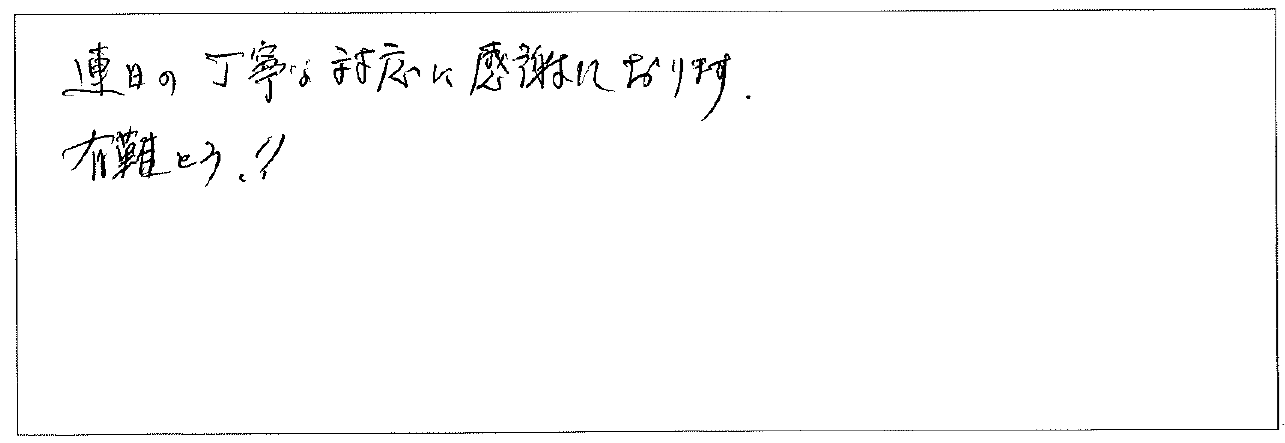 連日の丁寧な対応に感謝しております.
有難とう.!!